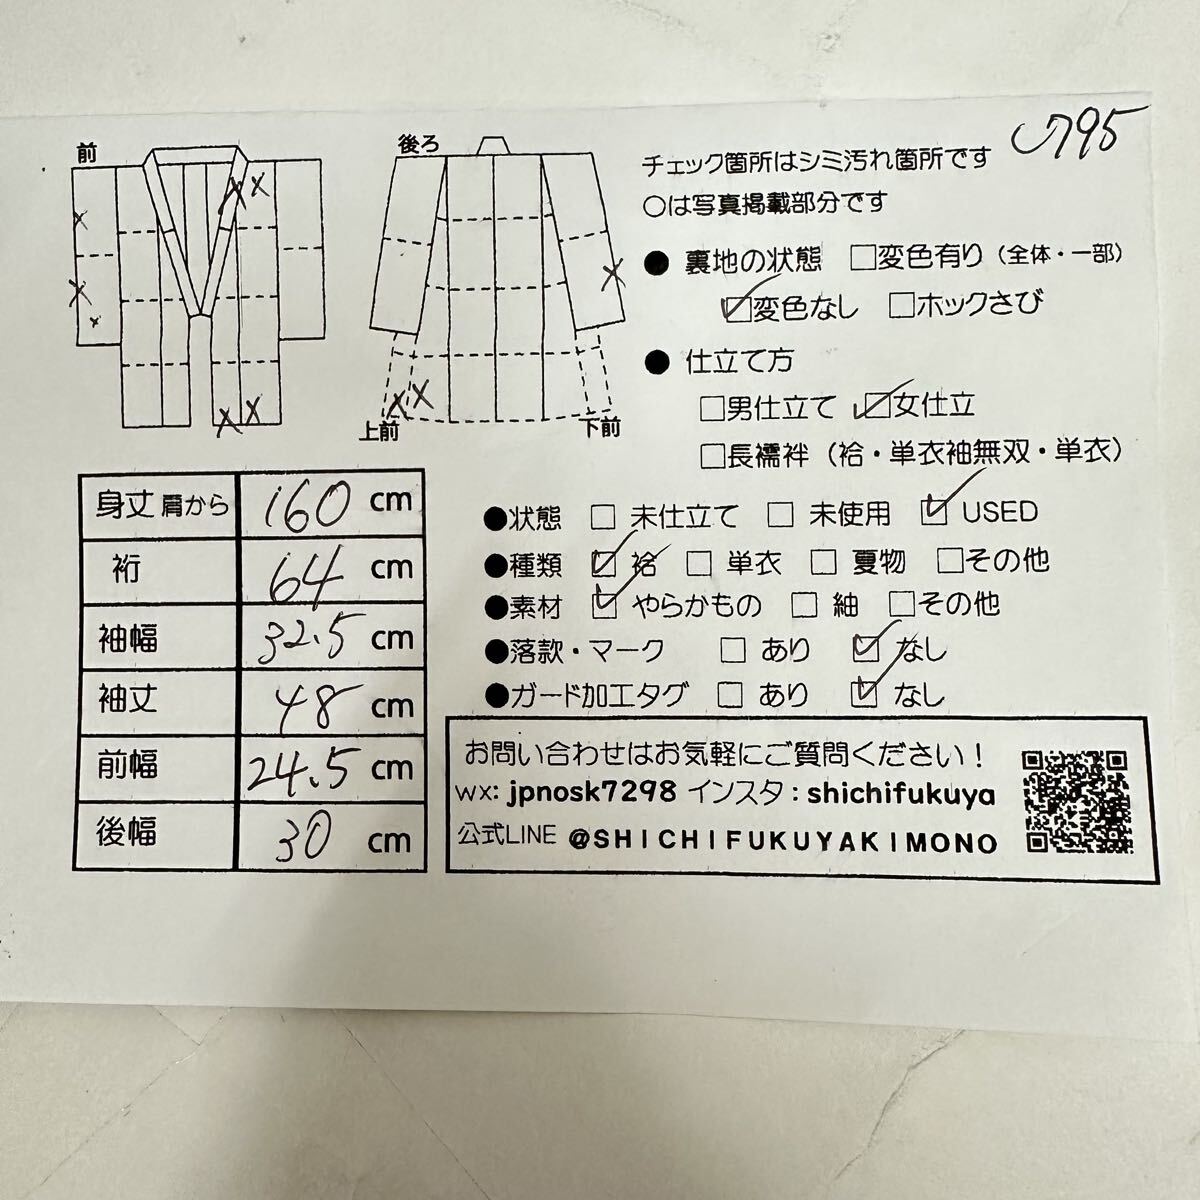 J795
前
後ろ
上前
下前
チェック箇所はシミ汚れ箇所です
○は写真掲載部分です
● 裏地の状態 □変色有り（全体・一部）
☑変色なし □ホックさび
● 仕立て方
□男仕立て ☑女仕立
□長襦袢（袷・単衣袖無双・単衣）
●状態 □ 未仕立て □ 未使用 ☑ USED
●種類 ☑ 袷 □ 単衣 □ 夏物 □その他
●素材 ☑ やらかもの □ 紬 □その他
●落款・マーク □ あり ☑ なし
●ガード加工タグ □ あり ☑ なし
身丈 肩から 160 cm
裄 64 cm
袖幅 32.5 cm
袖丈 48 cm
前幅 24.5 cm
後幅 30 cm
お問い合わせはお気軽にご質問ください！
wx: jpnosk7298 インスタ：shichifukuya
公式LINE @SHICHIFUKUYAKIMONO